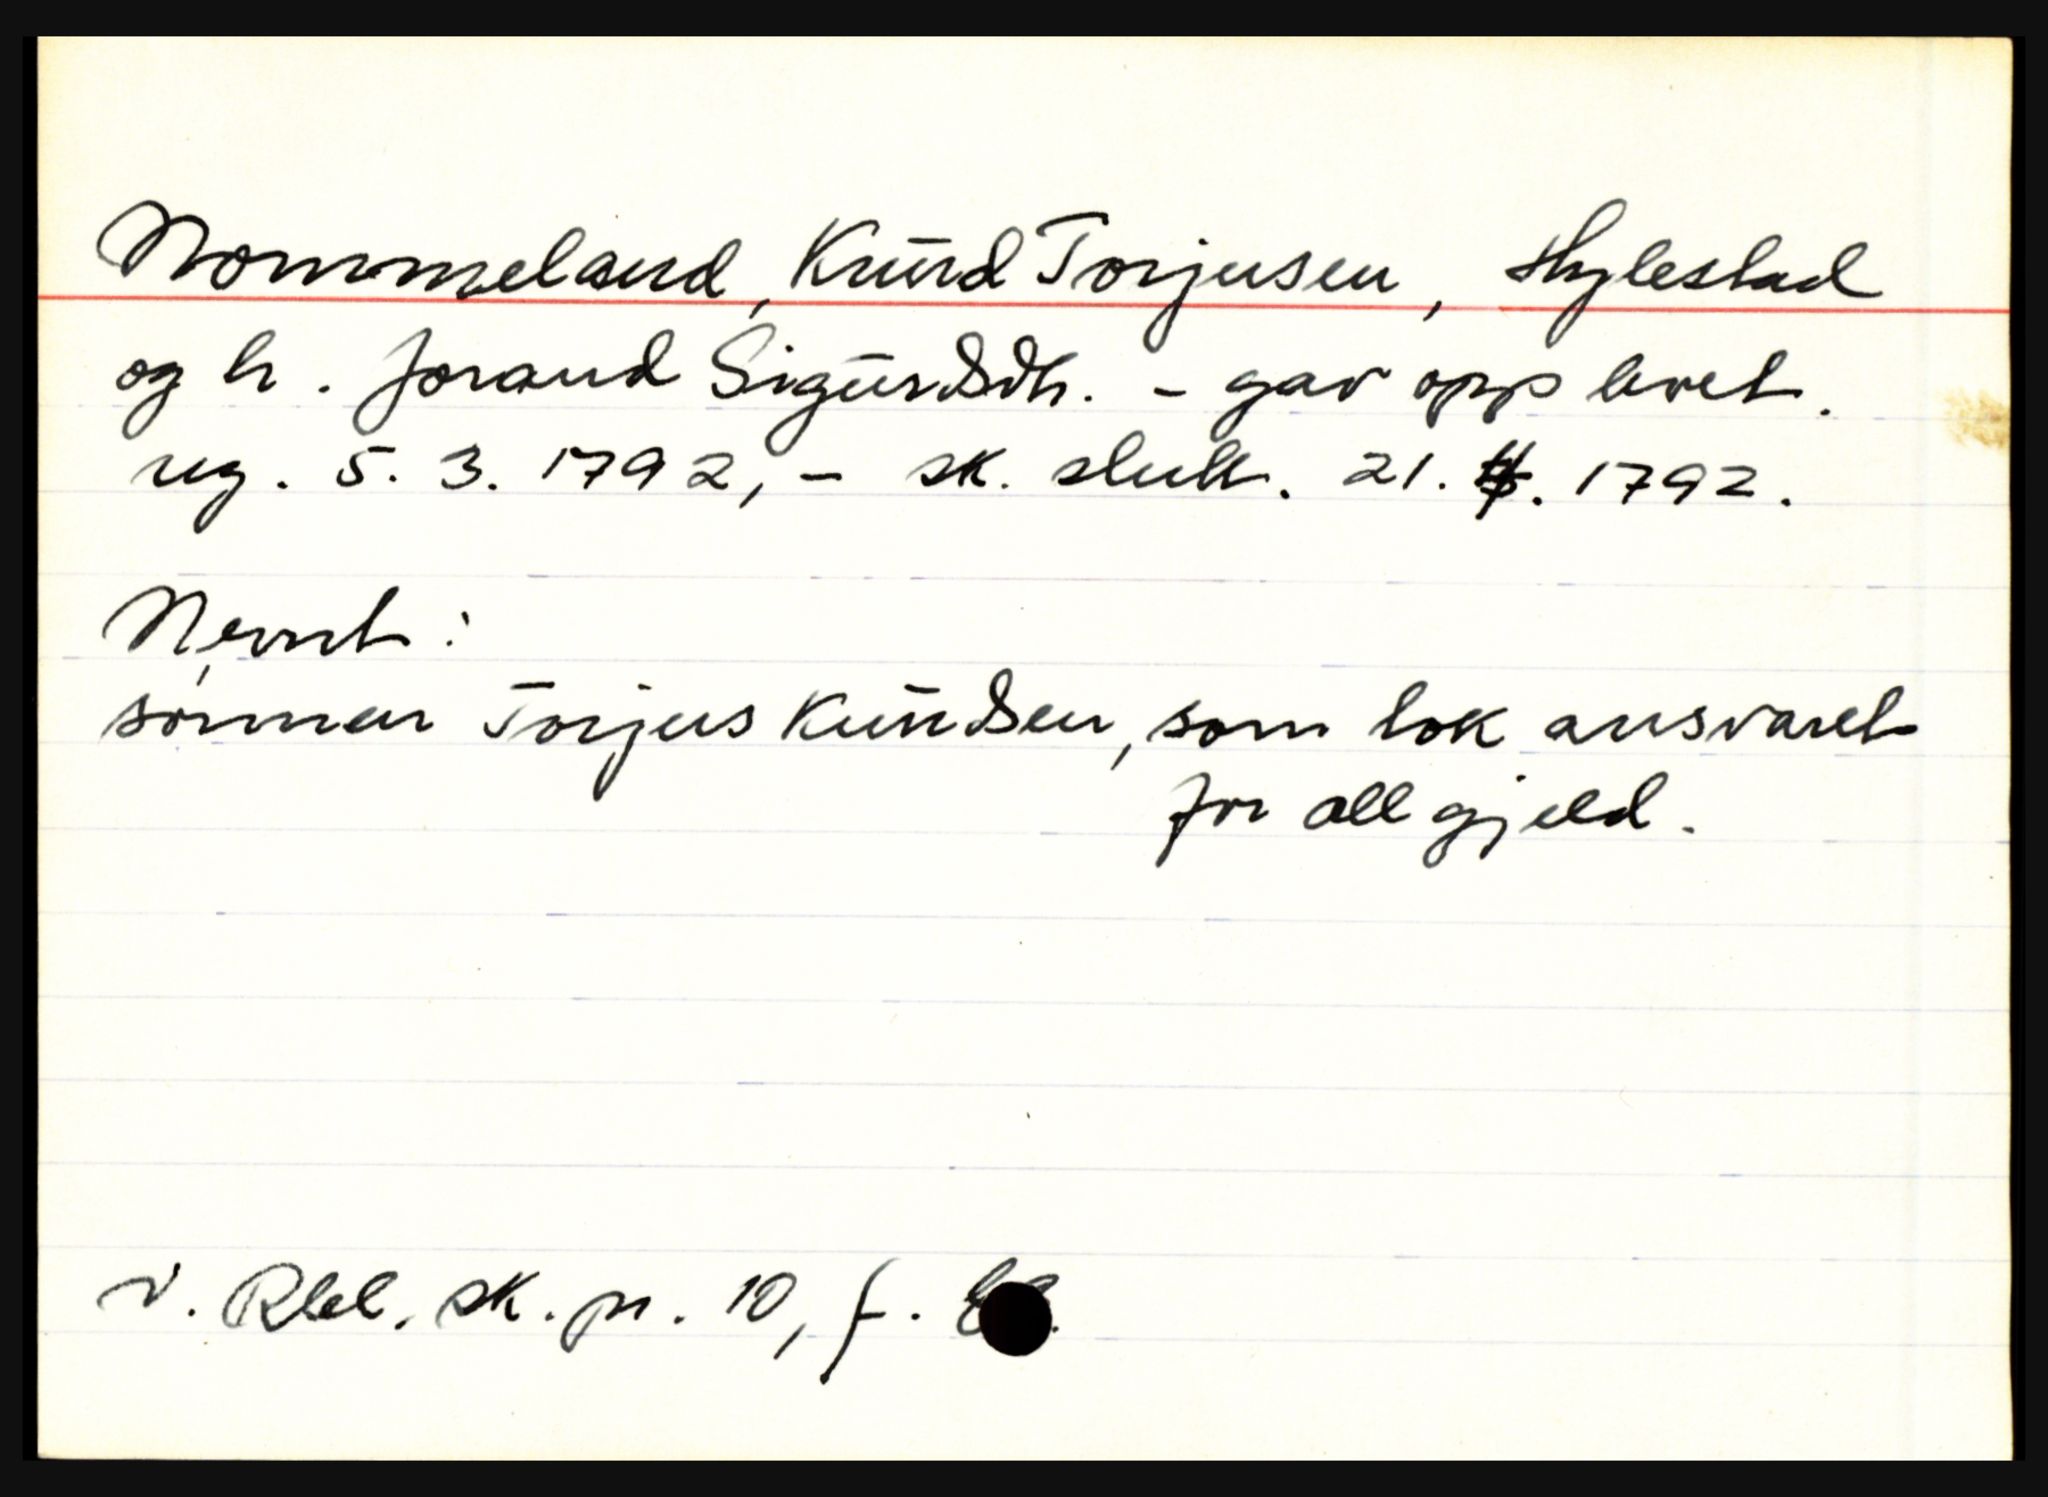 Nommeland, Knud Torjusen, Hylestad
og h. Jorand Sigurdsdtr. - gav opp livet.
reg. 5. 3. 1792, - sk. slutt. 21. 1792.
Nevnt:
sønnen Torjus Knudsen, som tok ansvaret
for all gjeld.
v. Rbl. sk. pr. 10, f.